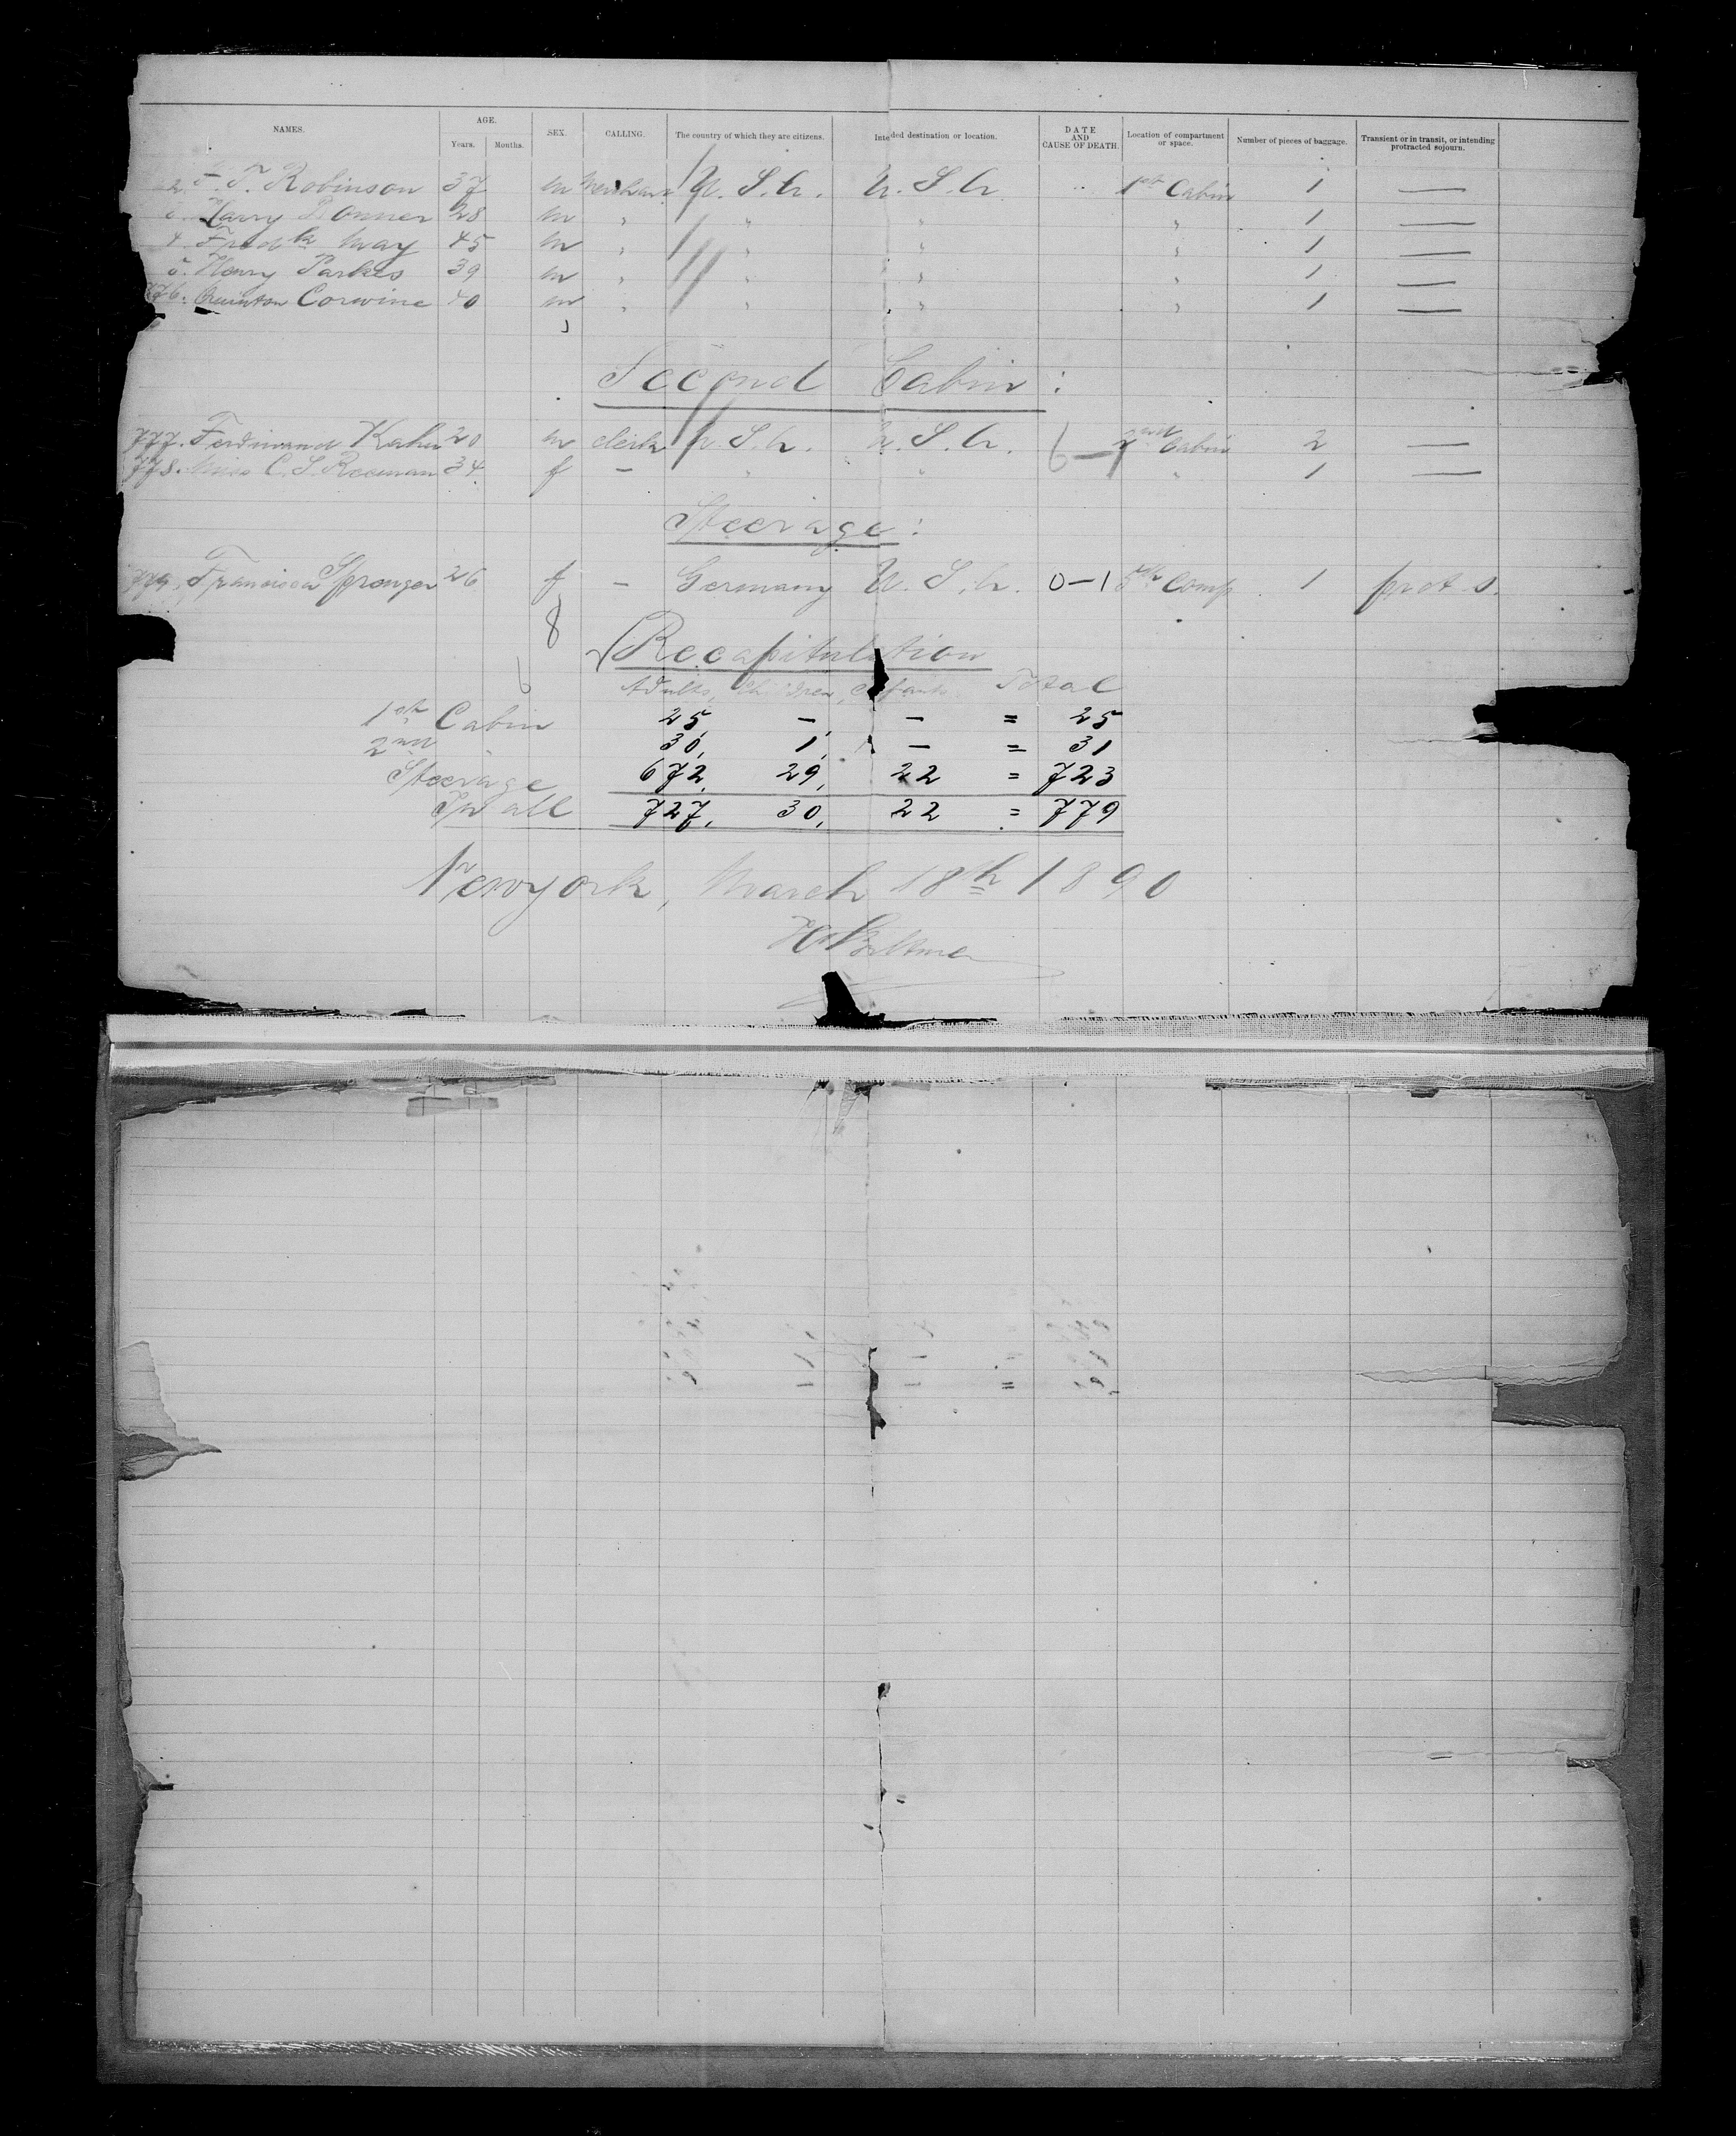 NAMES. AGE. Years. Months. SEX. CALLING. The country of which they are citizens. Intended destination or location. DATE AND CAUSE OF DEATH. Location of compartment or space. Number of pieces of baggage. Transient or in transit, or intending protracted sojourn.
2. F. T. Robinson 37 m U. S. A. U. S. A. 1st Cabin 1 —
Harry Bonner 28 m " " " " 1 —
4. Fredk May 45 m " " " " 1 —
5. Henry Parkes 39 m " " " " 1 —
776. Quinton Corwine 40 m " " " " 1 —
Second Cabin :
777. Ferdinand Kahn 20 m clerk U. S. A. U. S. A. 2nd Cabin 2 —
778. C. S. Reeman 34 f — " " " 1 —
Steerage :
779. Sprenger 26 f — Germany U. S. A. 0—1 5th Comp 1 prot. s.
8
Recapitulation
Adults, Children, Infants Total
1st Cabin 25, — — = 25
2nd 30, 1, — = 31
Steerage 672, 29, 22 = 723
In all 727, 30, 22 = 779
Newyork, March 18th 1890